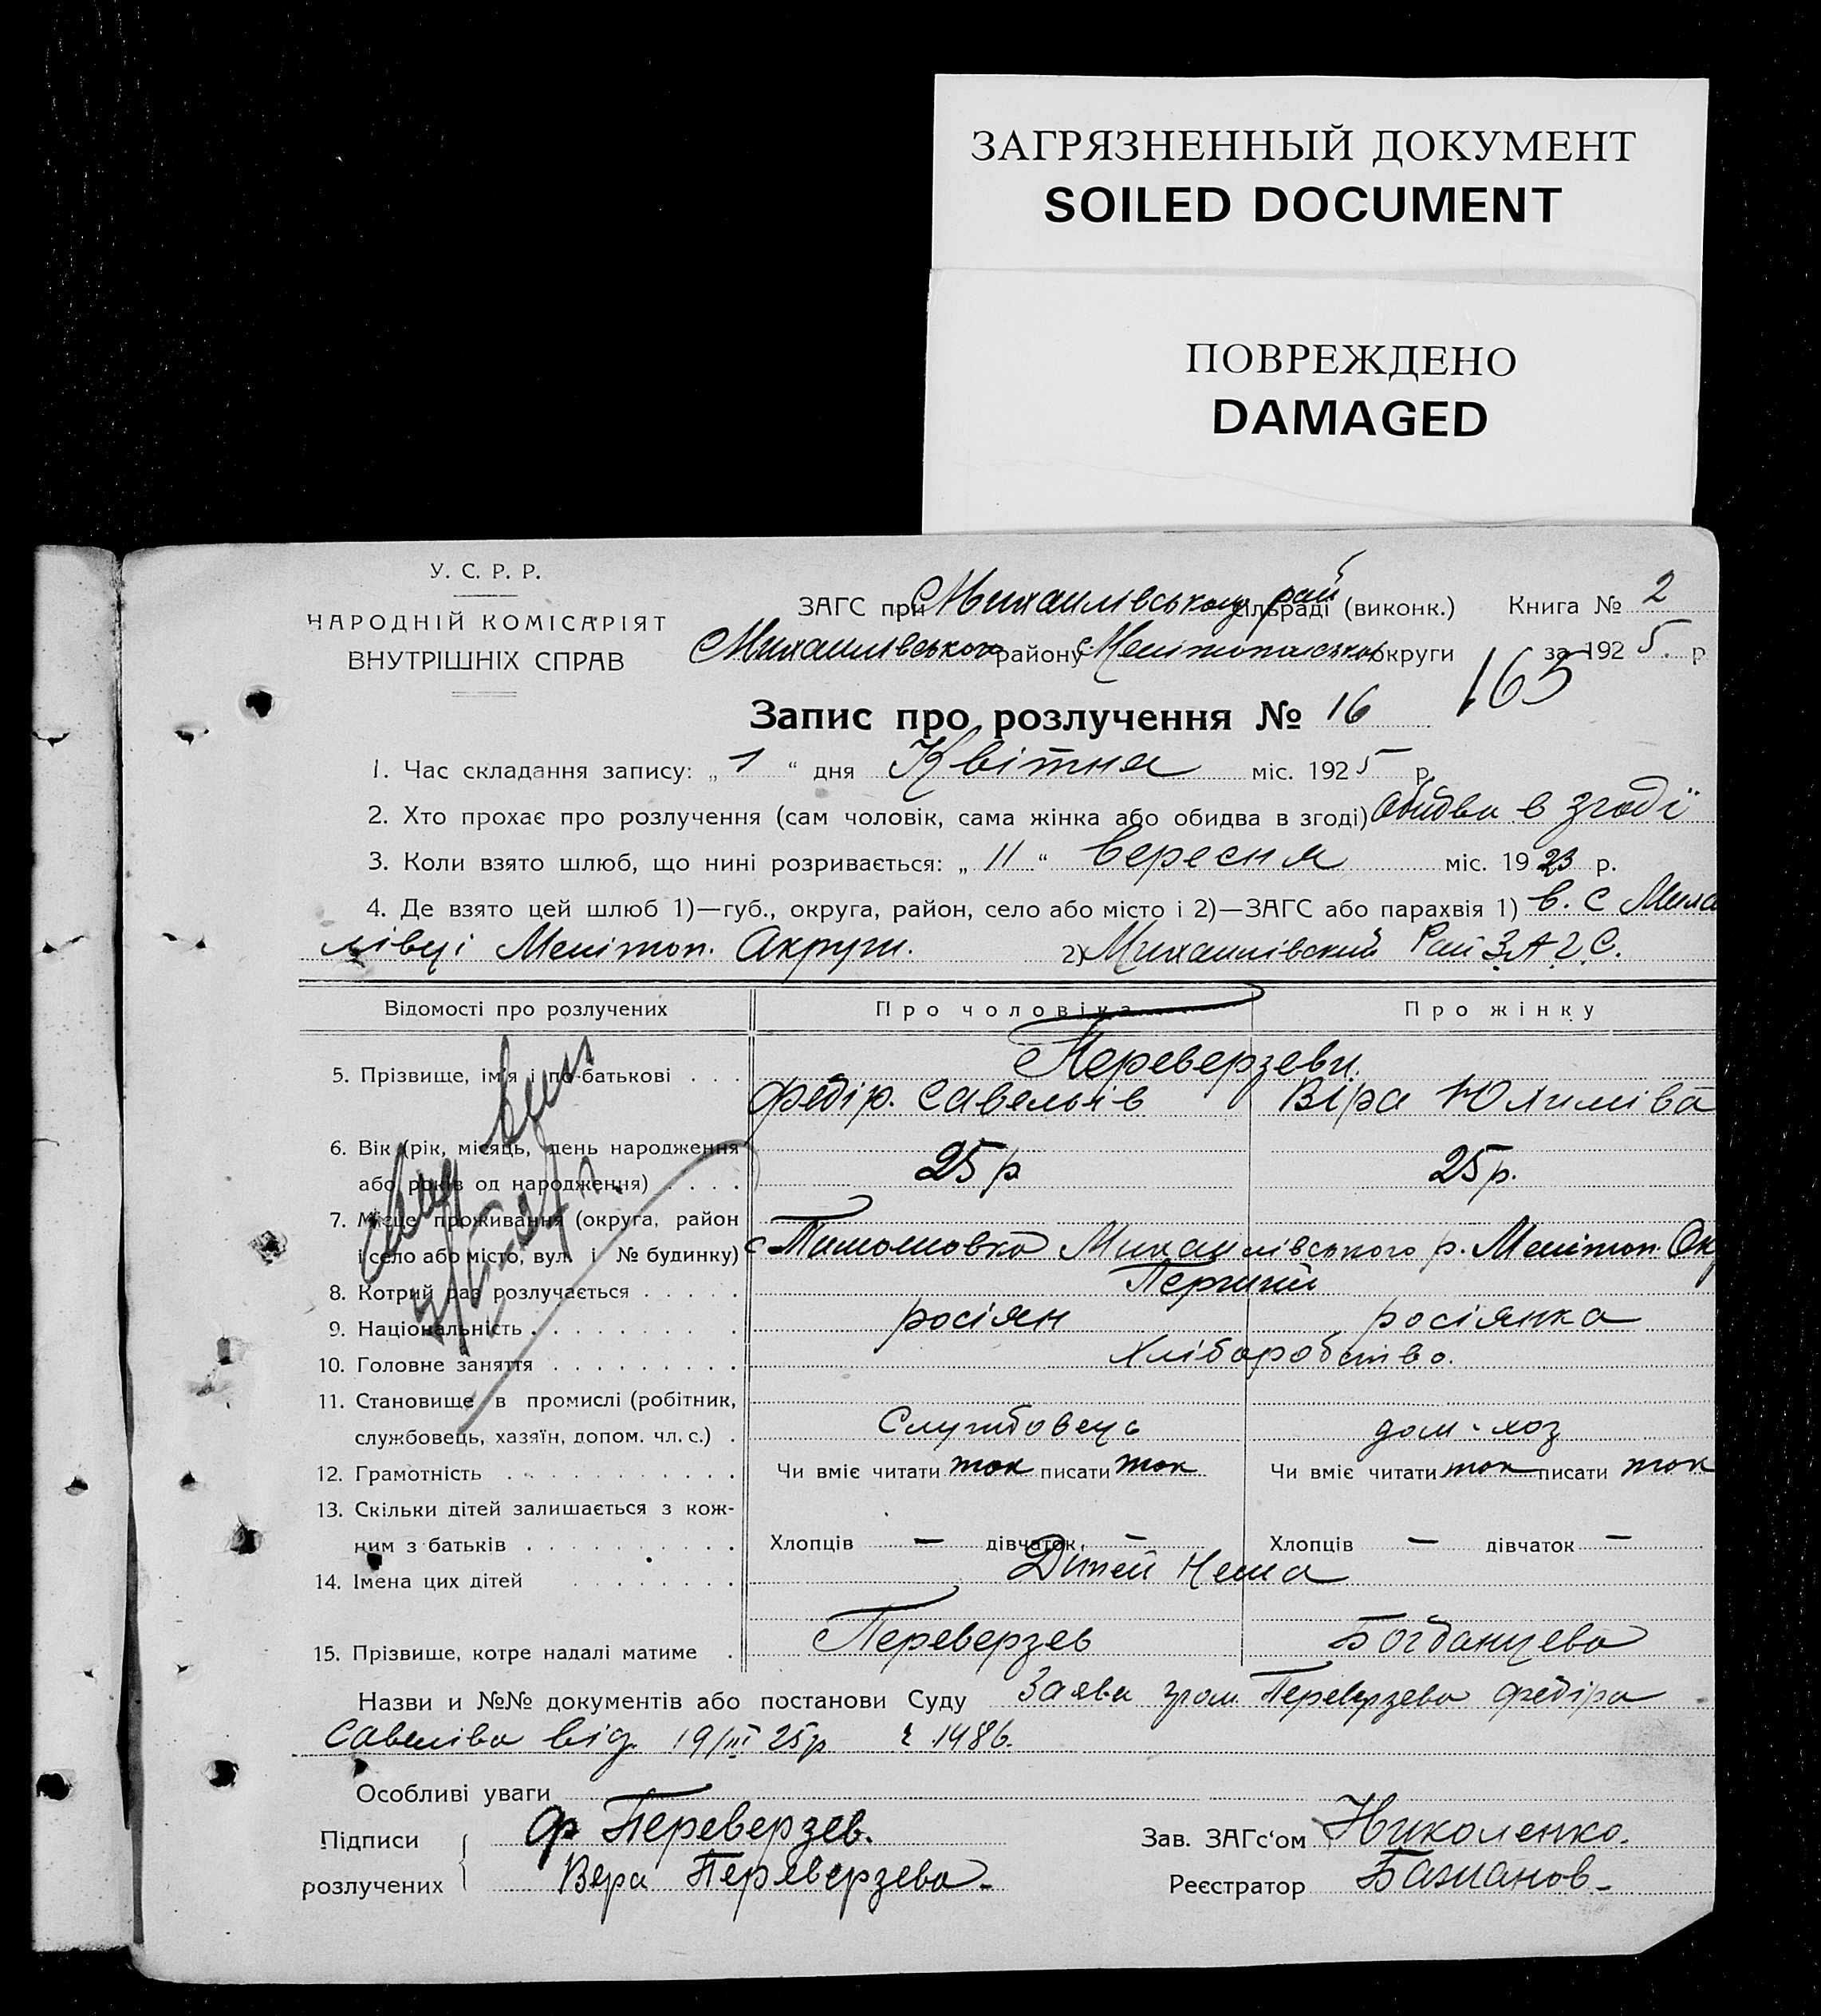 ЗАГРЯЗНЕННЫЙ ДОКУМЕНТ
SOILED DOCUMENT
ПОВРЕЖДЕНО
DAMAGED
У. С. Р. Р.
НАРОДНІЙ КОМІСАРІЯТ
ВНУТРІШНІХ СПРАВ
ЗАГС при Михаилівському рай сільраді (виконк.) Книга № 2
Михаилівського району Мелітопольської округи за 1925 р
165
Запис про розлучення № 16
1. Час складання запису: „ 1 “ дня Квітня міс. 1925 р.
2. Хто прохає про розлучення (сам чоловік, сама жінка або обидва в згоді) Обидва в згоді
3. Коли взято шлюб, що нині розривається: „ 11 “ Вересня міс. 1923 р.
4. Де взято цей шлюб 1)—губ., округа, район, село або місто і 2)—ЗАГС або парахвія 1) в. с
лівці Мелітоп. Округи. 2) Михаилівский Рай З.А.Г.С.
Відомості про розлучених Про чоловіка Про жінку
5. Прізвище, ім'я і по-батькові . . . Переверзеви.
Федір. Савельів Віра
6. Вік (рік, місяць, день народження
або років од народження) . . . . 25 р 25 р.
7. Місце проживання (округа, район
і село або місто, вул. і № будинку) с Тимошовка Михаилівського р. Мелітоп. Ок
8. Котрий раз розлучається . . . . . Перший
9. Національність . . . . . . . . . росіян росіянка
10. Головне заняття . . . . . . . . . Хліборобство.
11. Становище в промислі (робітник,
службовець, хазяїн, допом. чл. с.) . Службовець дом. хоз
12. Грамотність . . . . . . . . . . . Чи вміє читати так писати так Чи вміє читати так писати так
13. Скільки дітей залишається з кож-
ним з батьків . . . . . . . . . . Хлопців — дівчаток — Хлопців — дівчаток —
14. Імена цих дітей . . . . . . . . Дитей нема
15. Прізвише, котре надалі матиме . Переверзев Богданцева
Назви и №№ документів або постанови Суду Заява гром. Переверзева Федіра
Савеліва від. 19/III 25 р ч 1486.
Особливі уваги
Підписи розлучених { Ф Переверзев.
Вера Переверзева
Зав. ЗАГс‘ом Николенко.
Реєстратор Бажанов